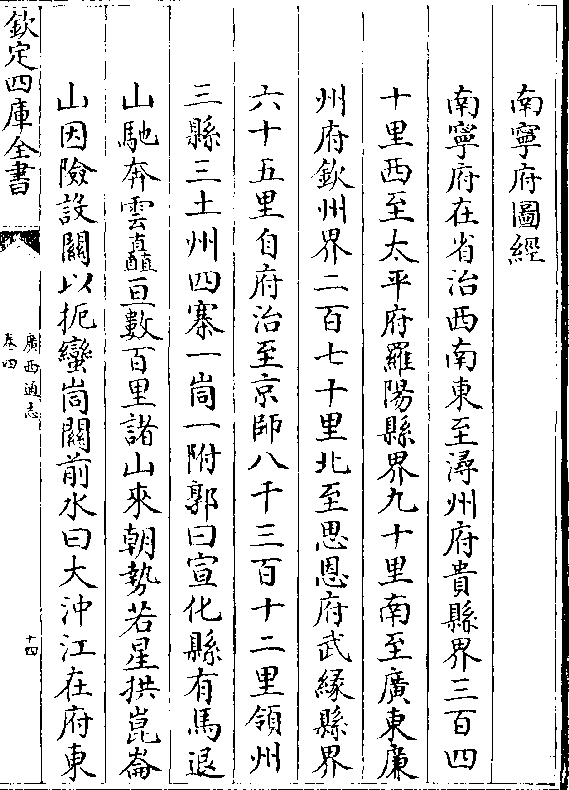 南寧府圖經
南寧府在省治西南東至潯州府貴縣界三百四
十里西至太平府羅陽縣界九十里南至廣東廉
州府欽州界二百七十里北至思恩府武緣縣界
六十五里自府治至京師八千三百十二里領州
三縣三土州四寨一峝一附郭曰宣化縣有馬退
山馳奔雲矗亘數百里諸山來朝勢若星拱崑崙
山因險設關以扼蠻峝關前水曰大沖江在府東
欽定四庫全書
廣西通志
卷四
十四